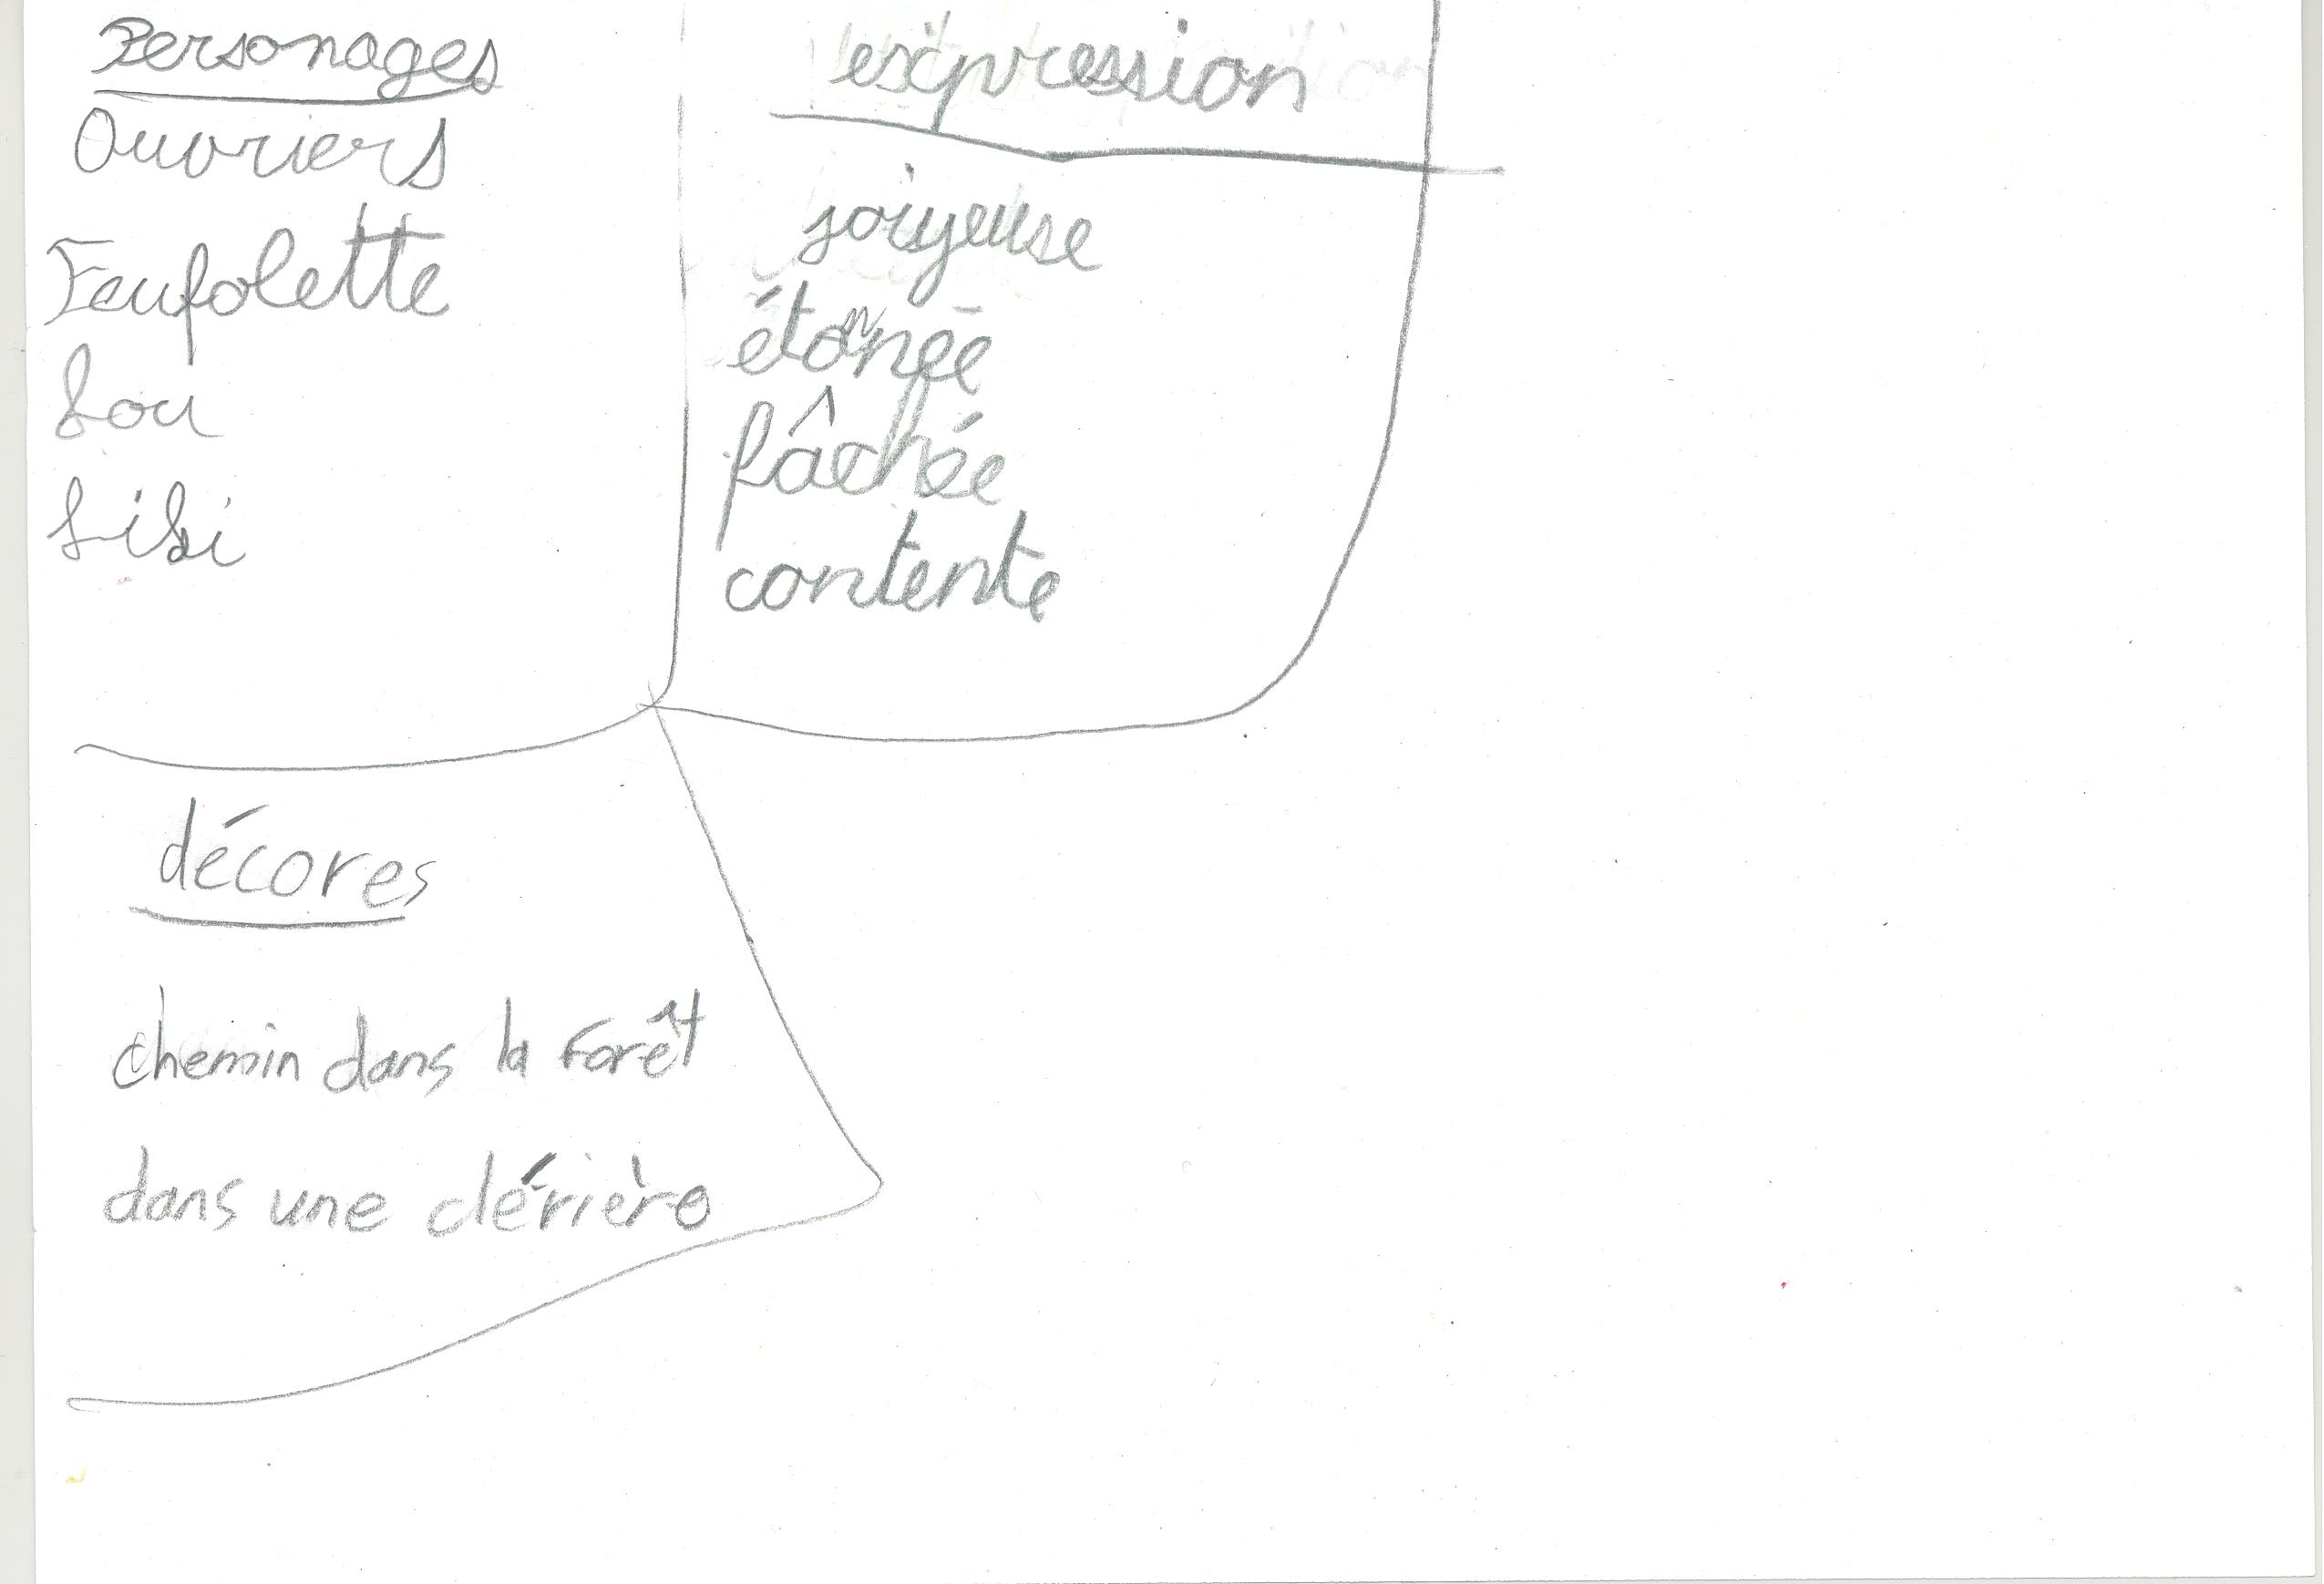 Personages
Ouvriers
Feufolette
Lou
Lili
expression
joiyeuse
étonnée
fâchée
contente
décores
chemin dans la Forêt
dans une clérière